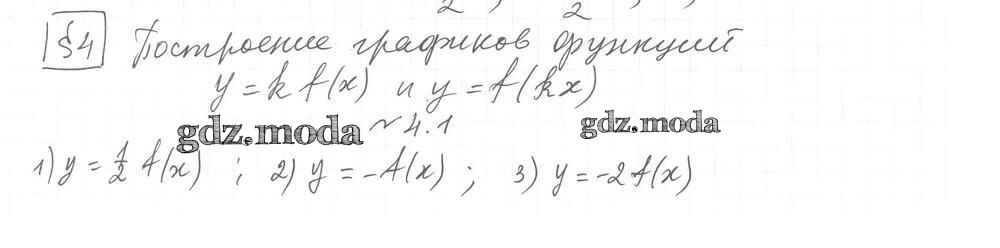 §4 Построение графиков функций
y = k f(x) и y = f(kx)
gdz.moda № 4.1 gdz.moda
1) y = 1/2 f(x) ; 2) y = -f(x) ; 3) y = -2f(x)